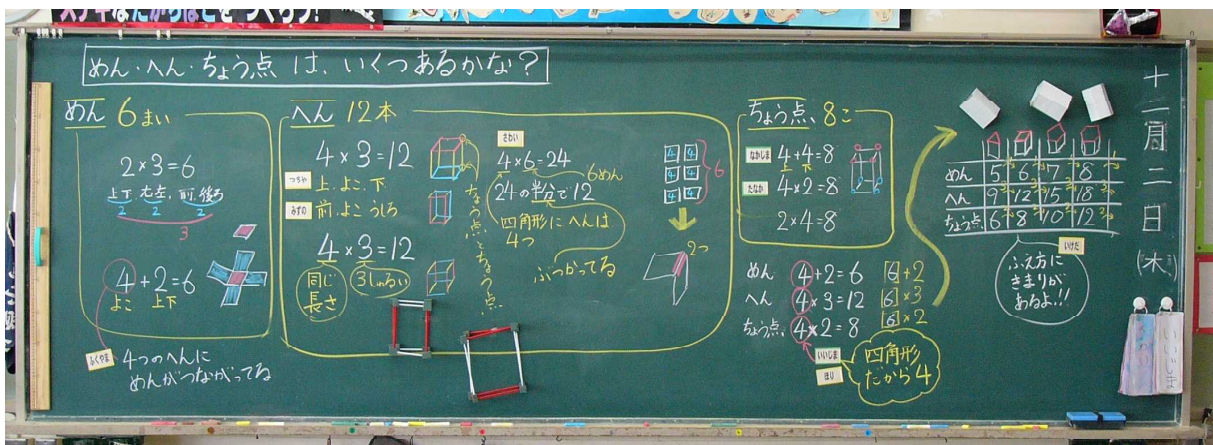 めん・へん・ちょう点は、いくつあるかな？
めん 6まい
2×3=6
上下、右左、前、後ろ
2 2 2
3
4+2=6
よこ 上下
ふくやま
4つのへんに
めんがつながってる
へん 12本
4×3=12
つちや
上・よこ・下
みずの
前・よこ うしろ
4×3=12
同じ
長さ
3しゅるい
ちょう点とちょう点
さわい
4×6=24
6めん
24の半分で12
四角形にへんは
4つ
ぶつかってる
4 4
4 4
4 4
6
2つ
ちょう点、8こ
なかじま
4+4=8
上 下
たなか
4×2=8
2×4=8
めん 4+2=6 6+2
へん 4×3=12 6×3
ちょう点、4×2=8 6×2
いいじま
ほり
四角形
だから4
めん 5 6 7 8
へん 9 12 15 18
ちょう点 6 8 10 12
いけだ
ふえ方に
きまりが
あるよ!!
十二月二日(木)
いいじま